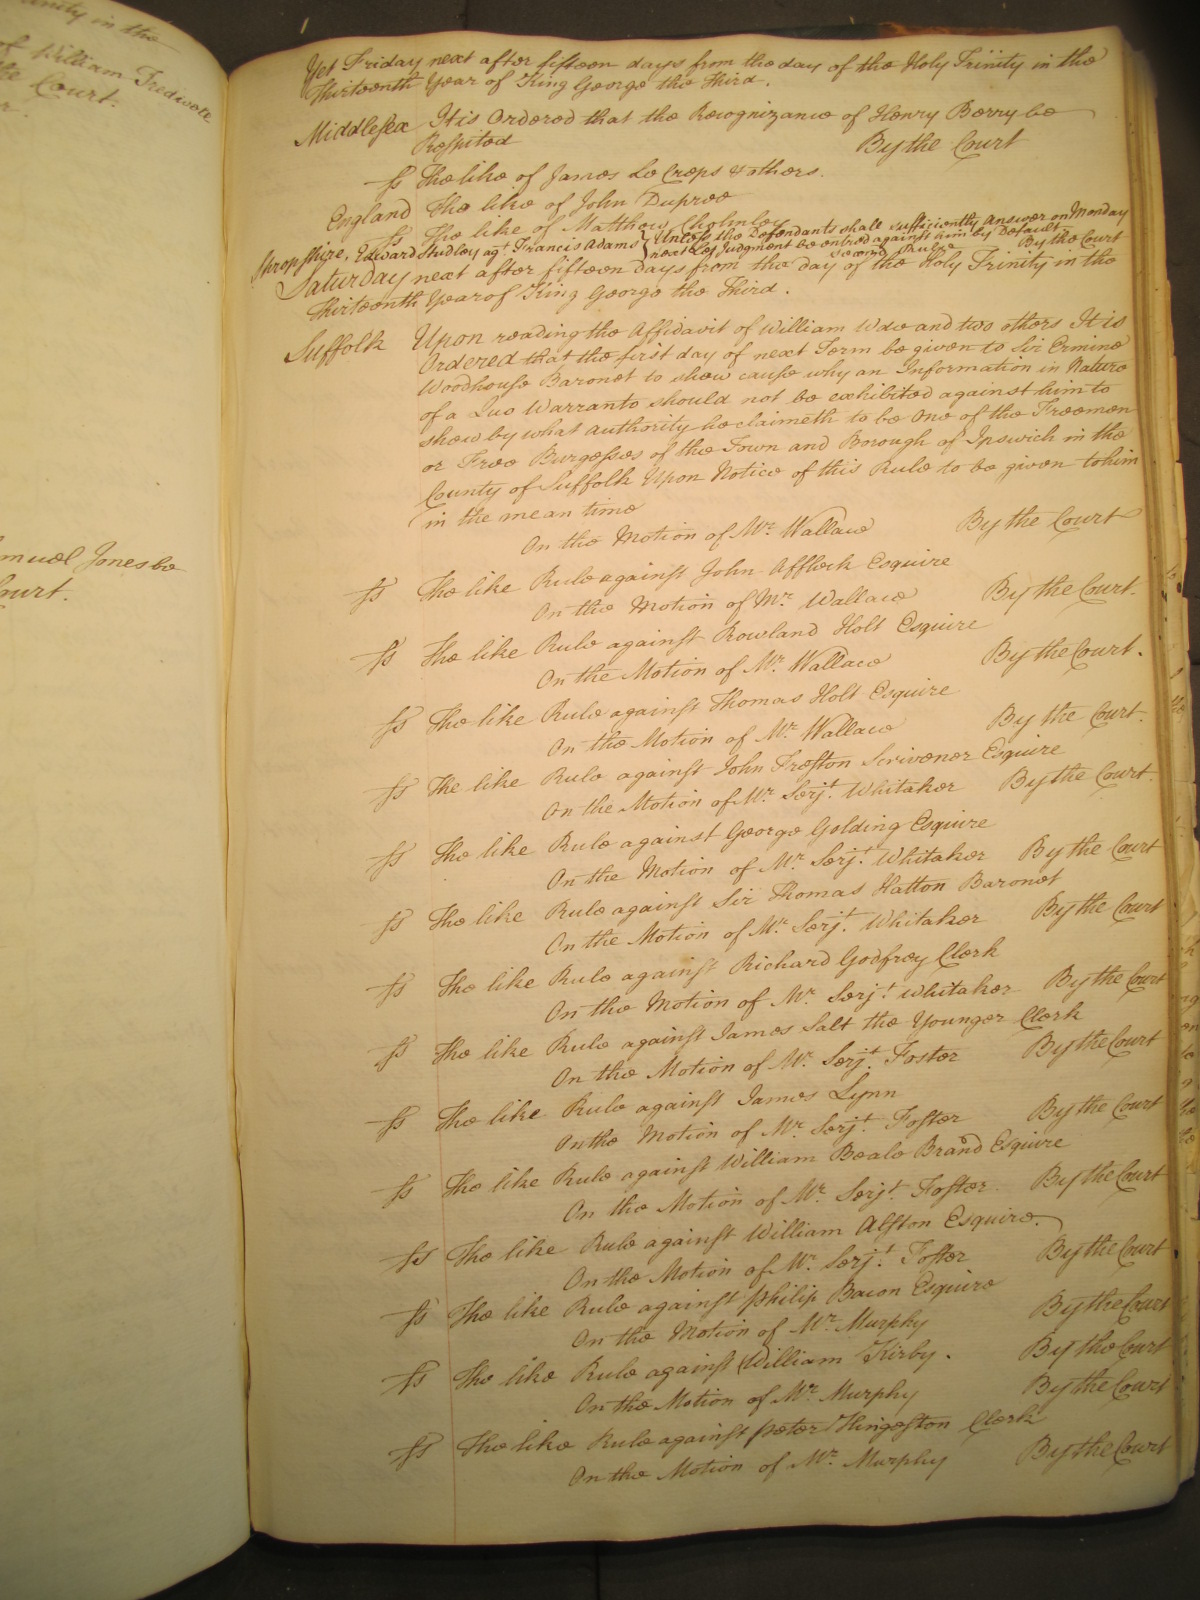 unity in the
of William Tredwate
the Court.
muel Jones be
Court.
Yet Friday next after fifteen days from the day of the Holy Trinity in the
Thirteenth Year of King George the Third.
Middlesex It is Ordered that the Recognizance of Henry Berry be
Respited By the Court
Ss The like of James Le Creps & others.
England The like of John Dupree
Ss The like of Matthew Cholmley
Shropshire, Edward Studley agt Francis Adams Unless the Defendants shall sufficiently Answer on Monday
next Let Judgment be entred against him by Default
By the Court
Saturday next after fifteen days from the day of the Holy Trinity in the
Thirteenth Year of King George the Third.
Suffolk Upon reading the Affidavit of William Wde and two others It is
Ordered that the first day of next Term be given to Sir Ermine
Woodhouse Baronet to shew cause why an Information in Nature
of a Quo Warranto should not be exhibited against him to
shew by what authority he claimeth to be One of the Freemen
or Free Burgesses of the Town and Borough of Ipswich in the
County of Suffolk Upon Notice of this Rule to be given to him
in the mean time
On the Motion of Mr. Wallace By the Court
Ss The like Rule against John Affleck Esquire
On the Motion of Mr. Wallace By the Court.
Ss The like Rule against Rowland Holt Esquire
On the Motion of Mr. Wallace By the Court.
Ss The like Rule against Thomas Holt Esquire
On the Motion of Mr. Wallace By the Court.
Ss The like Rule against John Freston Scrivener Esquire
On the Motion of Mr. Serjt. Whitaker By the Court.
Ss The like Rule against George Golding Esquire
On the Motion of Mr. Serjt. Whitaker By the Court
Ss The like Rule against Sir Thomas Hatton Baronet
On the Motion of Mr. Serjt. Whitaker By the Court
Ss The like Rule against Richard Godfrey Clerk
On the Motion of Mr. Serjt Whitaker By the Court
Ss The like Rule against James Salt the Younger Clerk
On the Motion of Mr. Serjt. Foster By the Court
Ss The like Rule against James Lynn
On the Motion of Mr. Serjt. Foster By the Court
Ss The like Rule against William Beale Brand Esquire
On the Motion of Mr. Serjt. Foster By the Court
Ss The like Rule against William Alston Esquire.
On the Motion of Mr. Serjt. Foster By the Court
Ss The like Rule against Philip Bacon Esquire
On the Motion of Mr. Murphy By the Court
Ss The like Rule against William Kirby. By the Court
On the Motion of Mr. Murphy By the Court
Ss The like Rule against Peter Hingeston Clerk
On the Motion of Mr. Murphy By the Court